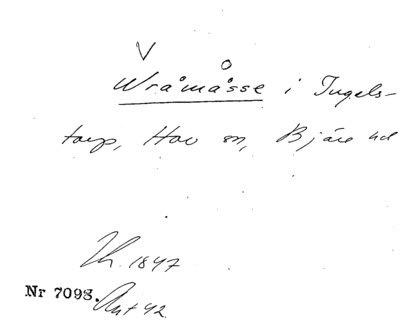 V o
Wråmåsse i Ingels-
torp, Hov sn, Bjäre hd
Th. 1847
Nr 7093.
Ant 42